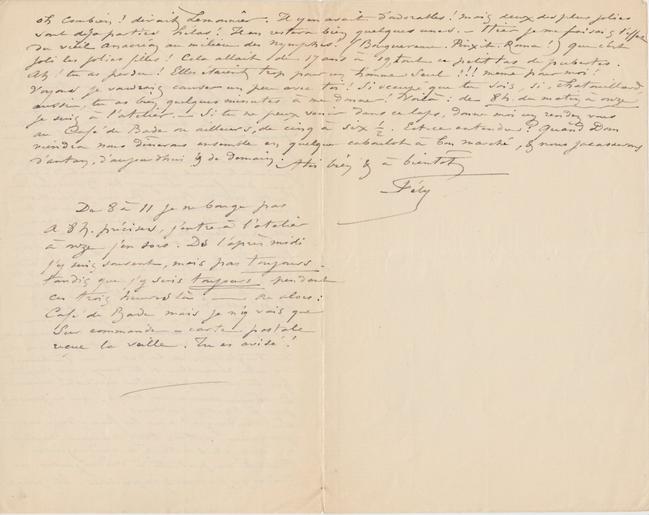 oh combien ! dirait Lemonnier. Il y en avait d'adorables ! mais deux des plus jolies
sont déjà parties hélas ! Il en restera bien quelques unes. — Hier je me faisais l'effet
du vieil Anacréon au milieu des nymphes. (Bouguereau. Pinxit. Roma !) que c'est
joli les jolies filles ! Cela allait de 17 ans à ce petit tas de pubertés.
Ah ! tu as perdu ! Elles étaient trop pour un homme seul !!! même pour moi !
Voyons je voudrais causer un peu avec toi ! Si occupé que tu sois, si
aussi, tu as bien quelques minutes à me donner ! Voilà : de 8h. du matin à onze
je suis à l'atelier. — Si tu ne peux venir dans ce laps, donne moi un rendez vous
au Café de Bade ou ailleurs, de cinq à six ½. Est-ce entendu ? Quand Dom
viendra nous dînerons ensemble en quelque caboulot à bon marché, & nous jacasserons
d'antan, d'aujourd'hui & de demain. à bientôt
Fély
De 8 à 11 je ne bouge pas
A 8h. précises, j'entre à l'atelier
à onze j'en sors. De l'après midi
j'y suis souvent, mais pas toujours.
tandis que j'y suis toujours pendant
ces trois heures là ! — ou alors :
Café de Bade mais je n'y vais que
sur commande – carte postale
reçue la veille. Tu es avisé !